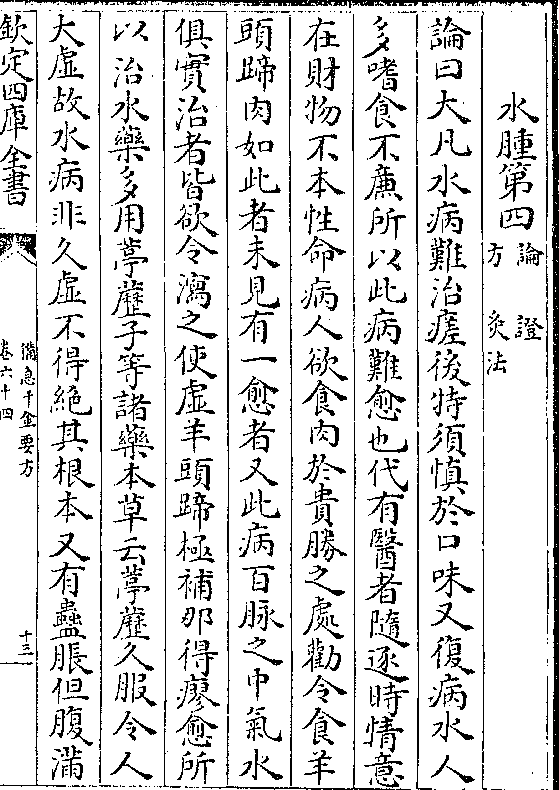 水腫第四論證方灸法
論曰大凡水病難治瘥後特須慎於口味又復病水人
多嗜食不廉所以此病難愈也代有醫者隨逐時情意
在財物不本性命病人欲食肉於貴勝之處勸令食羊
頭蹄肉如此者未見有一愈者又此病百脉之中氣水
俱實治者皆欲令瀉之使虛羊頭蹄極補那得瘳愈所
以治水藥多用葶藶子等諸藥本草云葶藶久服令人
大虛故水病非久虛不得絕其根本又有蠱脹但腹滿
欽定四庫全書
備急千金要方
卷六十四
十三